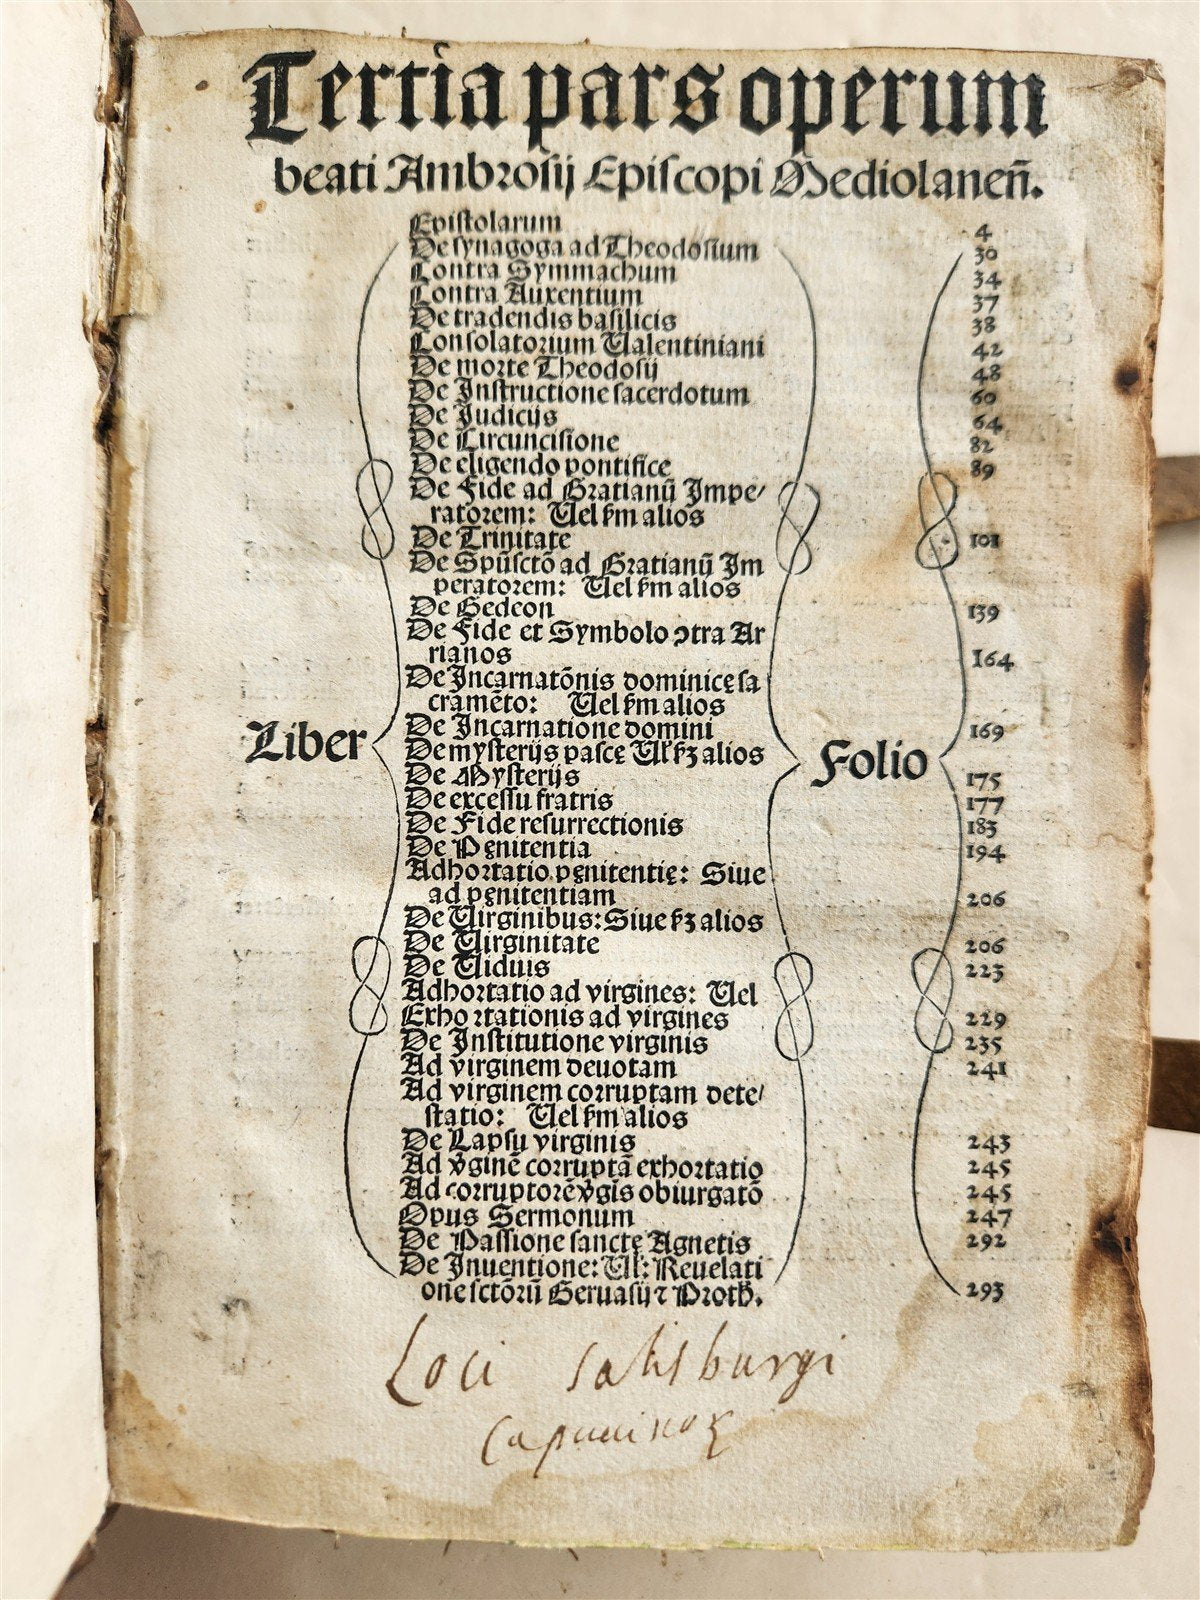 Tertia pars operum
beati Ambrosij Episcopi Mediolaneñ.
Epistolarum 4
De synagoga ad Theodosium 30
Contra Symmachum 34
Contra Auxentium 37
De tradendis basilicis 38
Consolatorium Ualentiniani 42
De morte Theodosij 48
De Instructione sacerdotum 60
De Judicijs 64
De Circuncisione 82
De eligendo pontifice 89
De Fide ad Gratianū Impe/
ratorem: Uel ẜm alios
De Trinitate 101
De Spūsctō ad Gratianū Im
peratorem: Uel ẜm alios
De Gedeon 139
De Fide et Symbolo ↄtra Ar
rianos 164
De Incarnatōnis dominicę sa
cramēto: Uel ẜm alios
De Incarnatione domini 169
De mysterijs pascę Ul̛ ẜꝫ alios
De Mysterijs 175
De excessu fratris 177
De Fide resurrectionis 183
De Pęnitentia 194
Adhortatio pęnitentię: Siue
ad pęnitentiam 206
De Uirginibus: Siue ẜꝫ alios
De Uirginitate 206
De Uiduis 223
Adhortatio ad virgines: Uel
Exhortationis ad virgines 229
De Institutione virginis 235
Ad virginem deuotam 241
Ad virginem corruptam dete/
statio: Uel ẜm alios
De Lapsu virginis 243
Ad v̛ginē corruptā exhortatio 245
Ad corruptorē v̛gīs obiurgatō 245
Opus Sermonum 247
De Passione sanctę Agnetis 292
De Inuentione: Ul̛: Reuelati
one sctōrū Geruasij ⁊ Proth. 293
Liber
Folio
Loci salisburgi